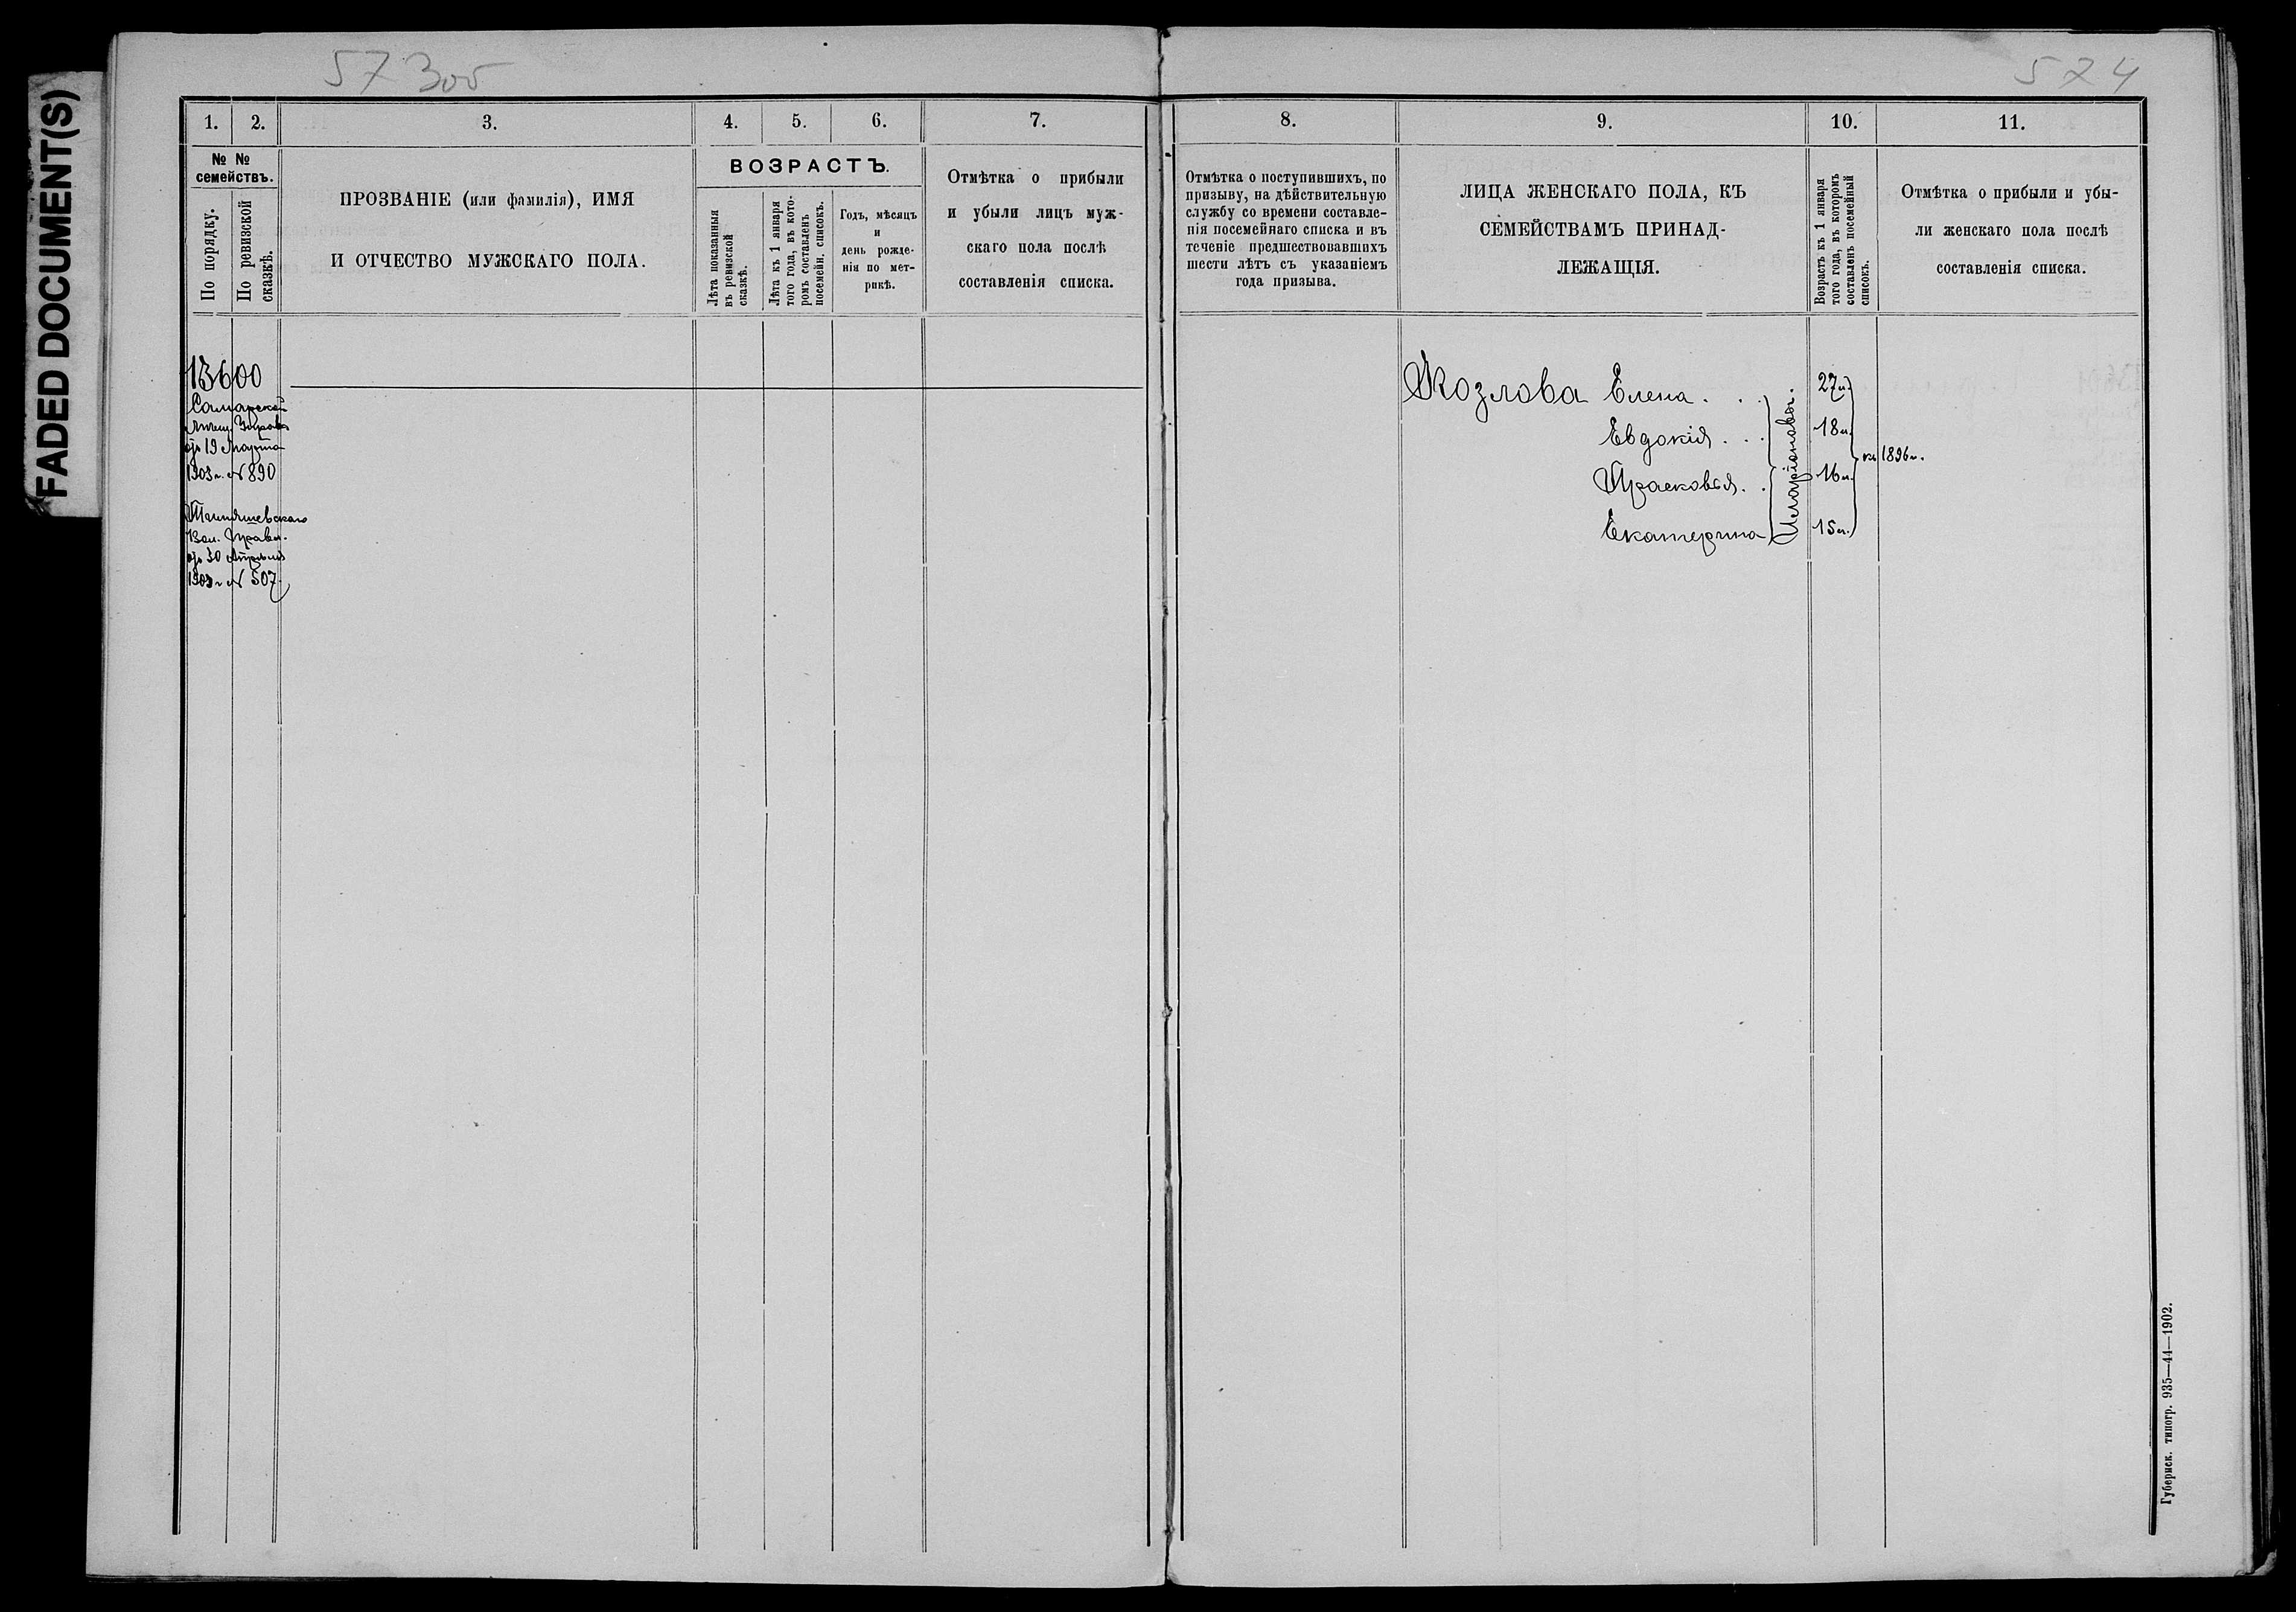 FADED DOCUMENT(S)
57 зоб
574
1. 2. 3. 4. 5. 6. 7.
№ №
семействъ.
По порядку.
По ревизской
сказкѣ.
ПРОЗВАНІЕ (или фамилія), ИМЯ
И ОТЧЕСТВО МУЖСКАГО ПОЛА.
ВОЗРАСТЪ.
Лѣта показанныя
въ ревизской
сказкѣ.
Лѣта къ 1 января
того года, въ кото-
ромъ составленъ
посемейн. списокъ.
Годъ, мѣсяцъ
и
день рожде-
нія по мет-
рикѣ.
Отмѣтка о прибыли
и убыли лицъ муж-
скаго пола послѣ
составленія списка.
13600
Самарской
Мѣщ. Управы
отъ 19 Марта
1903 г. № 890
Вол. Правл.
отъ 30 Апрѣля
1903 г № 507
8. 9. 10. 11.
Отмѣтка о поступившихъ, по
призыву, на дѣйствительную
службу со времени составле-
нія посемейнаго списка и въ
теченіе предшествовавшихъ
шести лѣтъ съ указаніемъ
года призыва.
ЛИЦА ЖЕНСКАГО ПОЛА, КЪ
СЕМЕЙСТВАМЪ ПРИНАД-
ЛЕЖАЩІЯ.
Возрастъ къ 1 января
того года, въ которомъ
составленъ посемейный
списокъ.
Отмѣтка о прибыли и убы-
ли женскаго пола послѣ
составленія списка.
Козлова Елена . . 27 л.
Евдокія . . . 18 л.
Прасковья . . 16 л.
Екатерина 15 л.
Иларіоновы.
къ 1896 г.
Губернск. типогр. 935—44—1902.